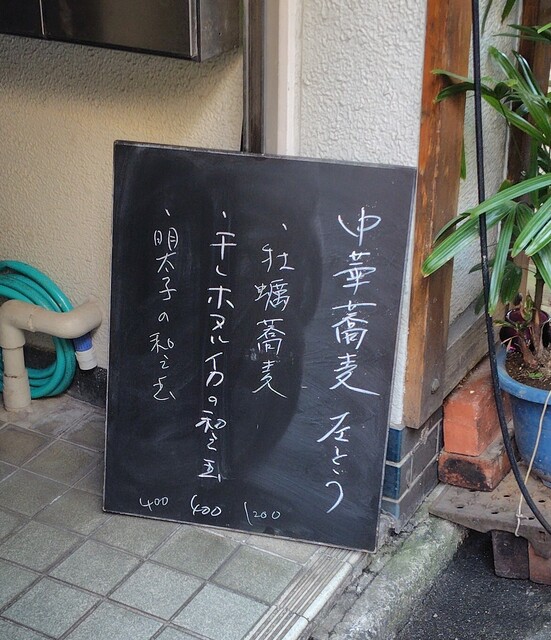 中華蕎麦 左とう
・牡蠣蕎麦 1200
・干しホタルイカの和え玉 400
・明太子の和え玉 400